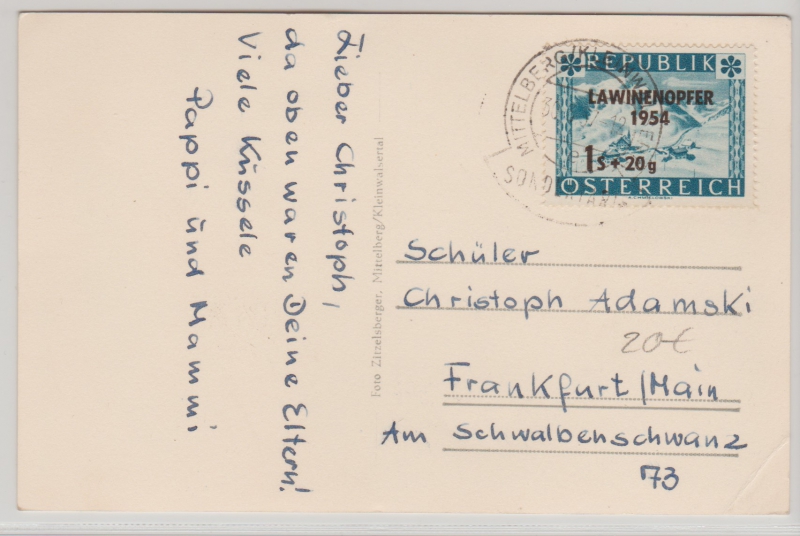 Lieber Christoph,
da oben waren Deine Eltern!
Viele Küssele
Pappi und Mammi
Foto Zitzelsberger, Mittelberg/Kleinwalsertal
MITTELBERG/KLEINW
REPUBLIK
LAWINENOPFER
1954
1S + 20g
ÖSTERREICH
Schüler
Christoph Adamski
20€
Frankfurt/Main
Am Schwalbenschwanz
73